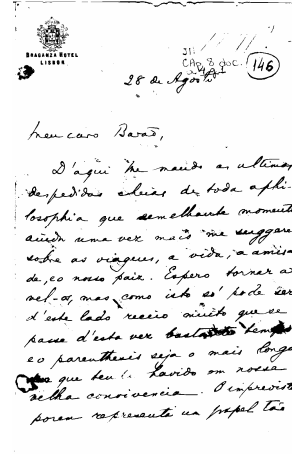 BRAGANZA HOTEL
LISBOA
CAp. 8 doc.
146
28 de Agosto
Meu caro Barão,
D'aqui lhe mando as ultimas
despedidas cheias de toda a phi-
losophia que semelhante momento
ainda uma vez mais me suggere
sobre as viagens, a vida, a amisa
de, e o nosso paiz. Espero tornar a
vel-os, mas como isto só pode ser
d'este lado receio muito que se
passe d'esta vez bastante tempo
e o parenthesis seja o mais longo
que tem havido em nossa
velha convivencia. O imprevisto
porem representa um papel tão